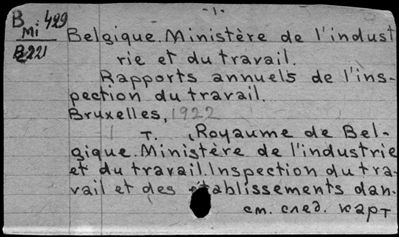 -1-
B 429
Mi
B221
Belgique. Ministère de l'indust
rie et du travail.
Rapports annuels de l'ins-
pection du travail.
Bruxelles, 1922
1 т. (Royaume de Bel-
gique. Ministère de l'industrie
et du travail. Inspection du tra-
vail et des établissements dan-
см. след. карт